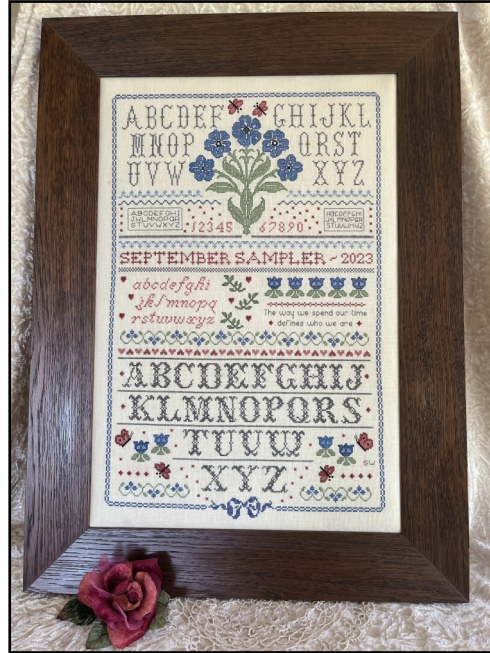 ABCDEF GHIJKL
MNOP QRST
UVW XYZ
ABCDEFGHI
JKLMNOPQR
STUVWXYZ
12345 67890
ABCDEFGHI
JKLMNOPQR
STUVWXYZ
SEPTEMBER SAMPLER ~ 2023
abcdefghi
jklmnopq
rstuvwxyz
The way we spend our time
defines who we are
ABCDEFGHIJ
KLMNOPQRS
TUVW
XYZ
SW